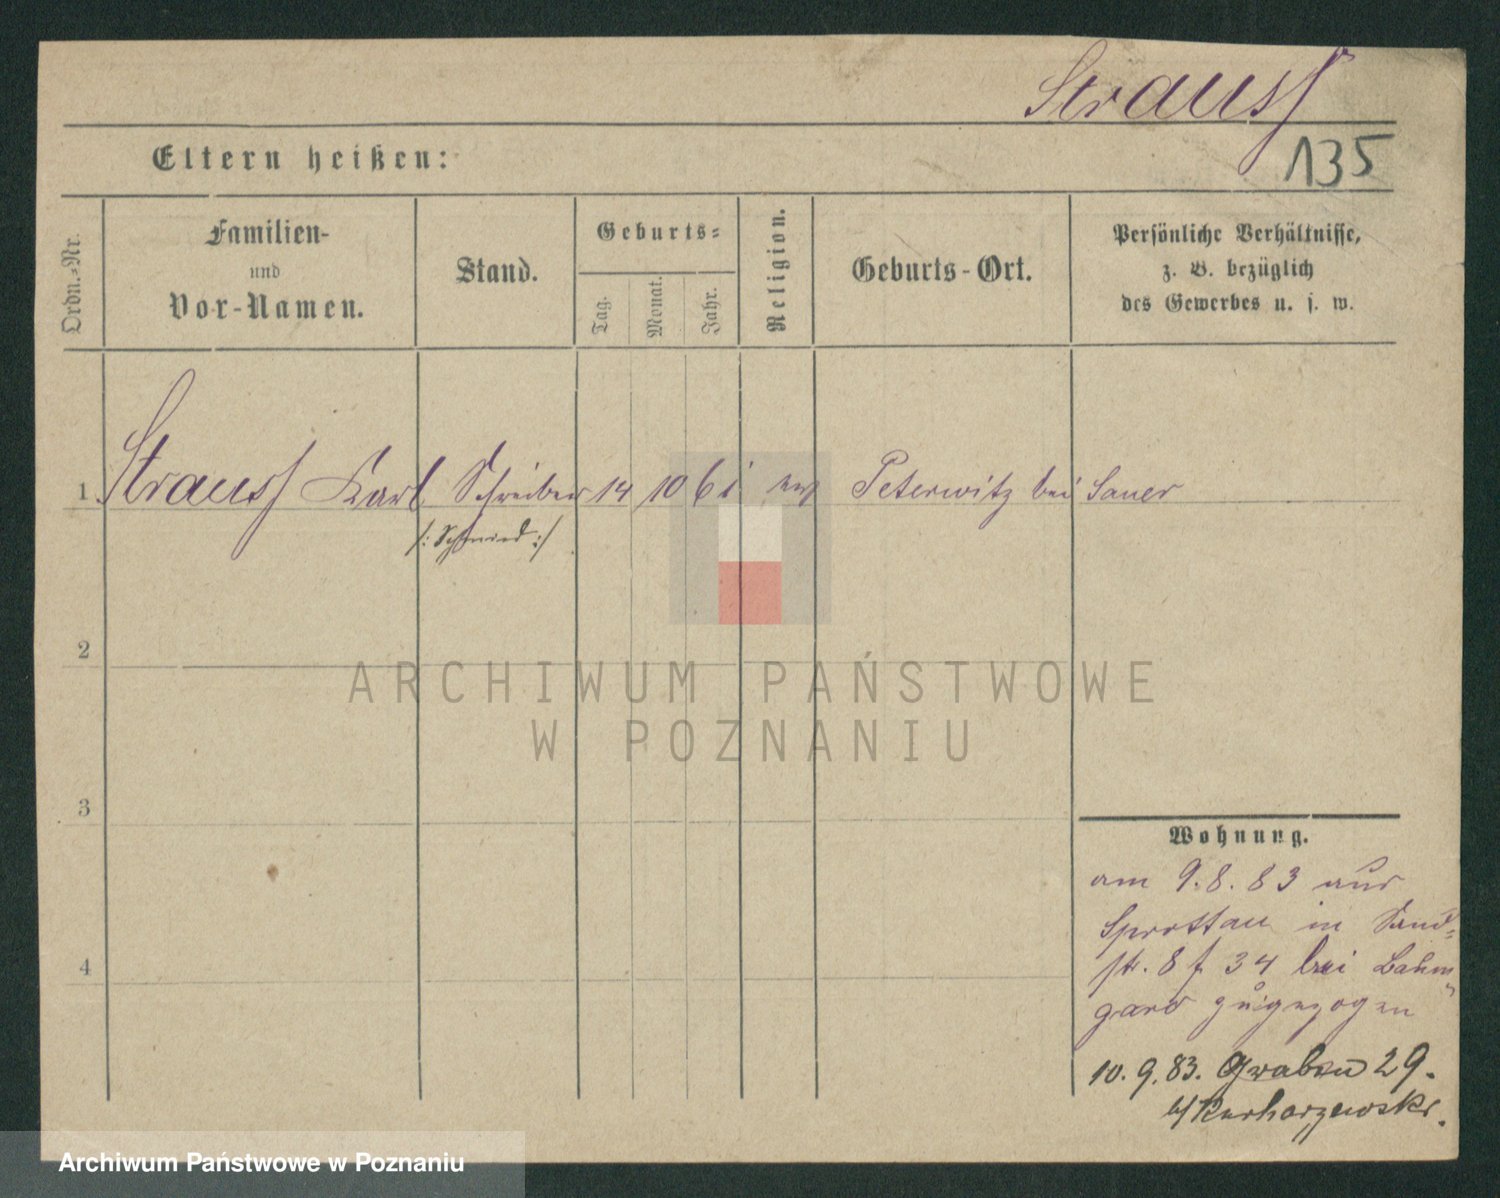 Strauss
135
Eltern heißen:
Ordn.-Nr.
Familien-
und
Vor-Namen.
Stand.
Geburts-
Tag.
Monat.
Jahr.
Religion.
Geburts-Ort.
Persönliche Verhältnisse,
z. B. bezüglich
des Gewerbes u. s. w.
1 Strauss Karl Schreiber 14 10 61 ev Peterwitz bei Jauer
/: Schmied :/
2
ARCHIWUM PAŃSTWOWE
W POZNANIU
3
Wohnung.
am 9.8.83 aus
Sprottau in Sand-
str. 8 34 bei
zugezogen
4
10.9.83. Graben 29.
b/
Archiwum Państwowe w Poznaniu